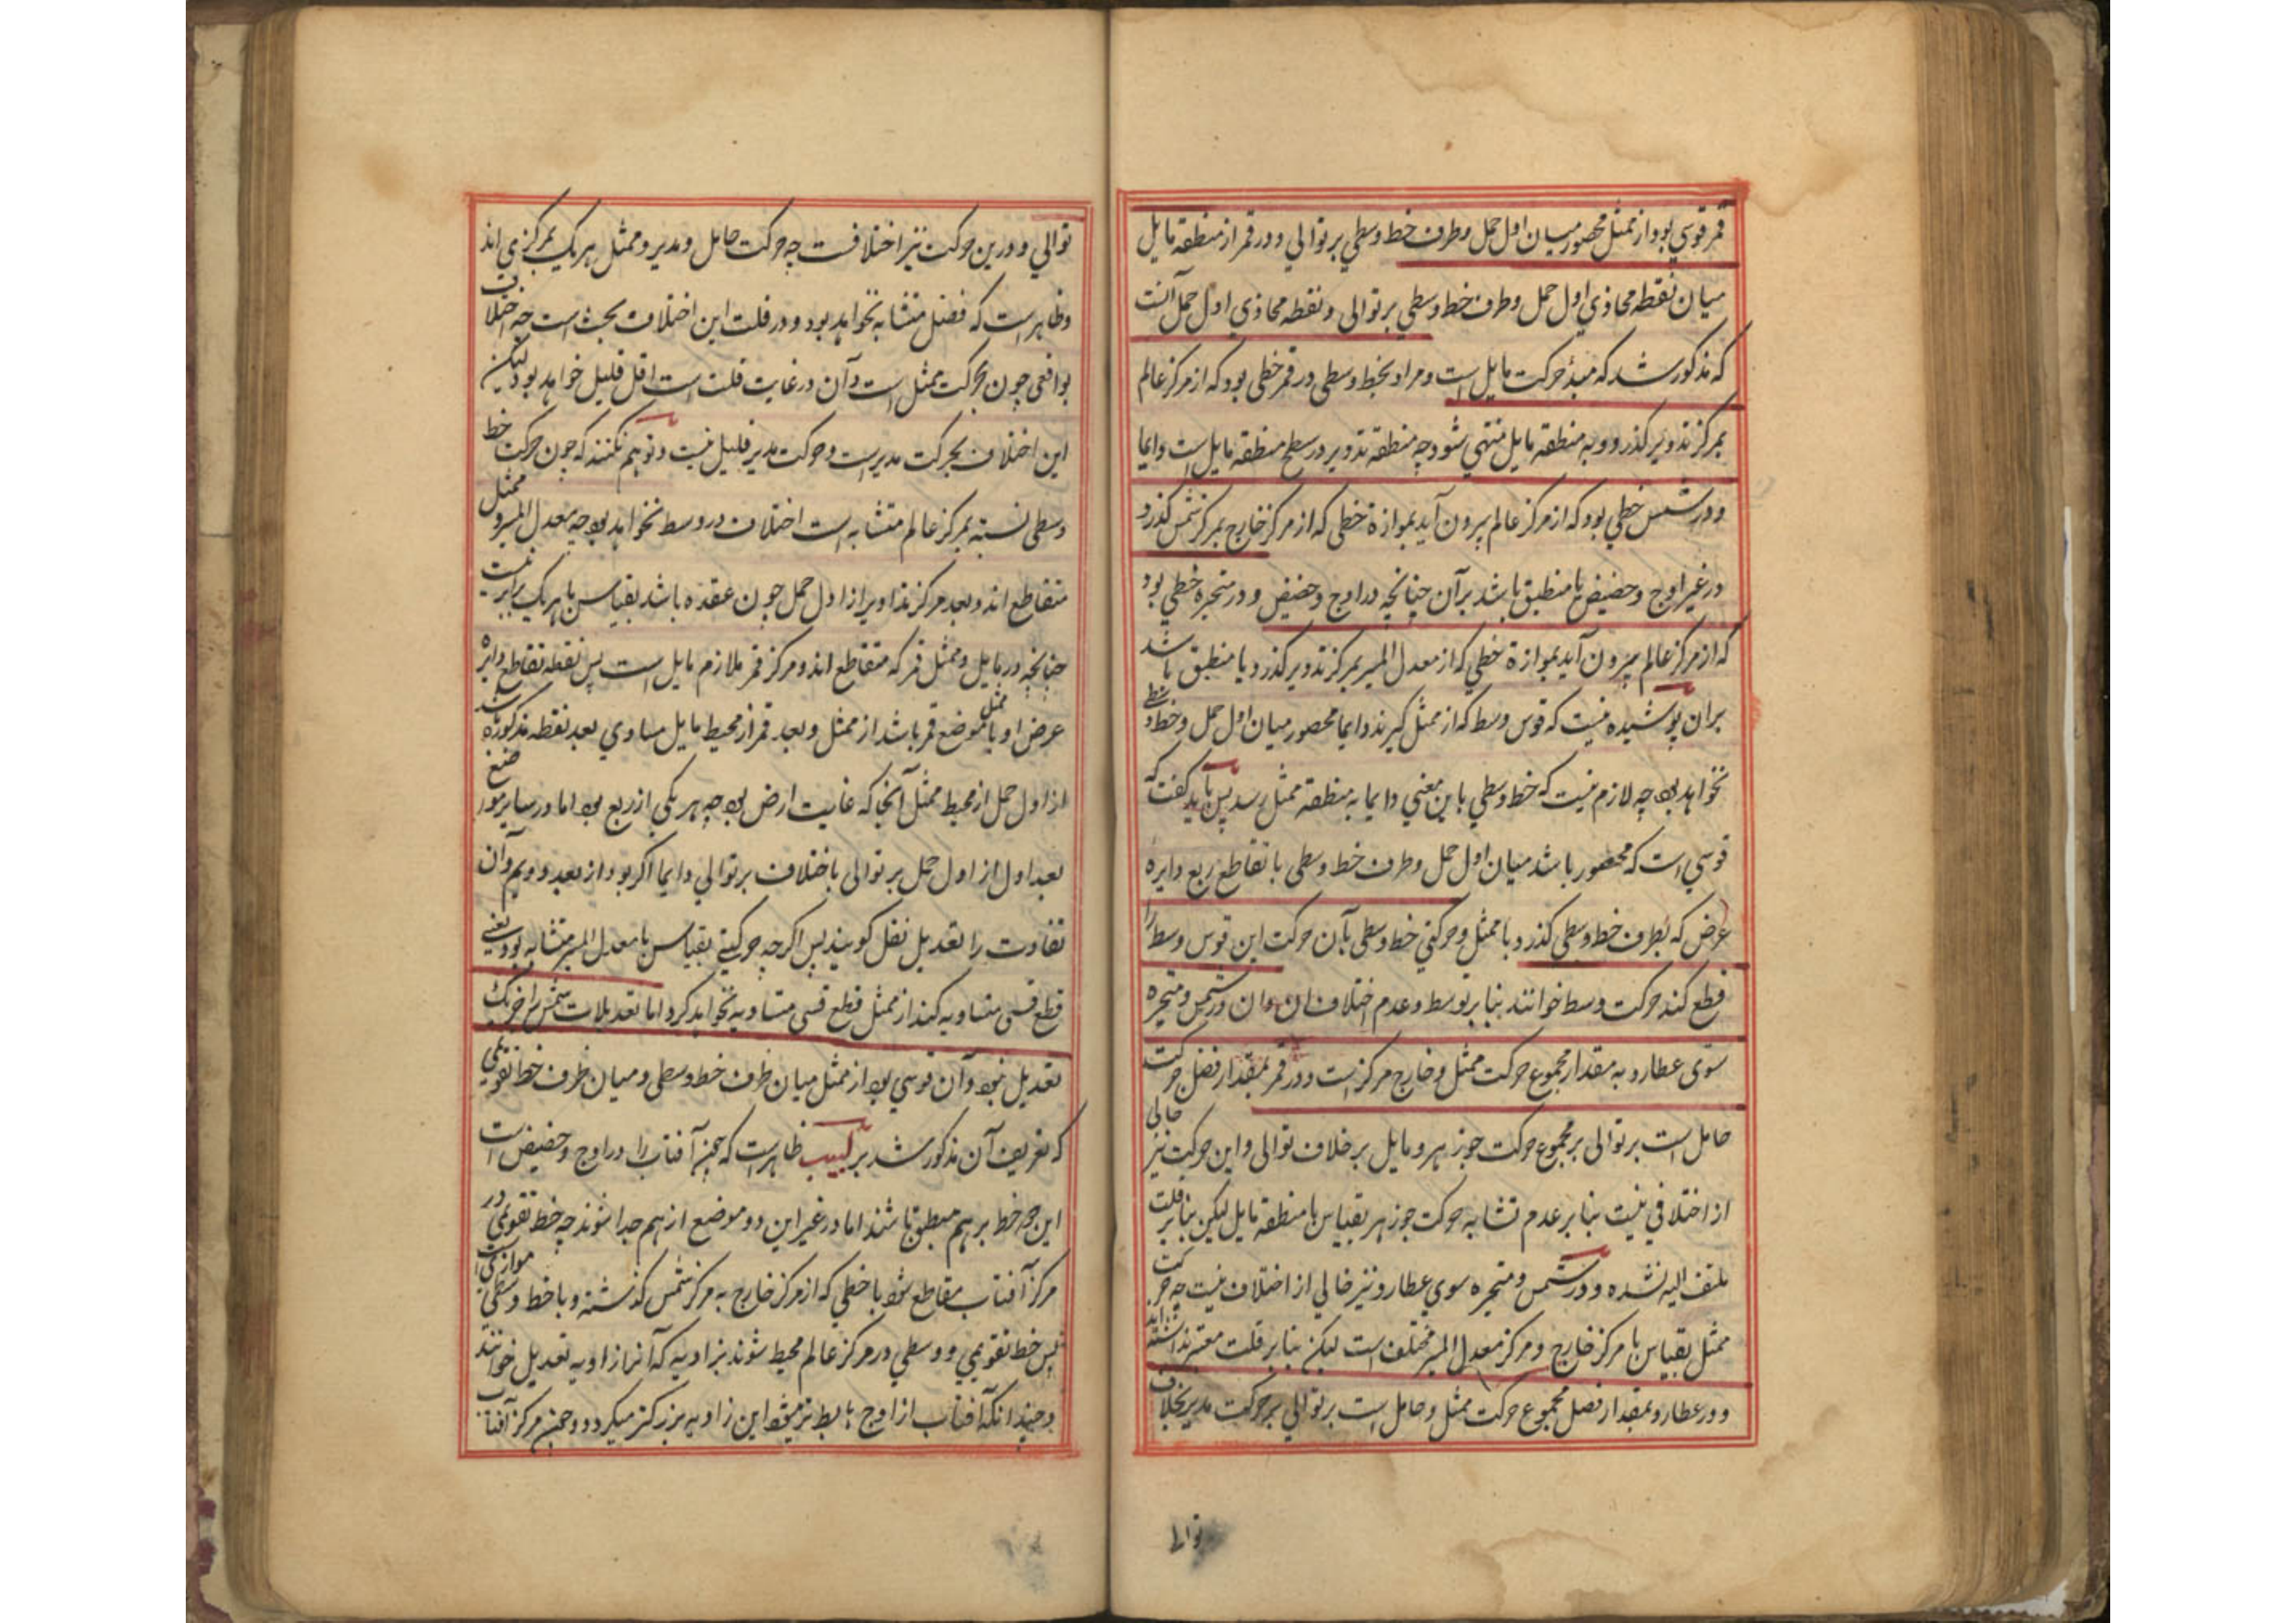 قمر قوسی بود از ممثل محصور میان اول حمل و طرف خط وسطی بر توالی و در قمر از منطقه مایل
میان نقطه محاذی اول حمل و طرف خط وسطی بر توالی و نقطه محاذی اول حمل آنست
که مذکور شد که مبدأ حرکت مایل است و مراد بخط وسطی در قمر خطی بود که از مرکز عالم
بمرکز تدویر کذرد و به منطقه مایل منتهی شود چه منطقه تدویر در سطح منطقه مایل است دایما
و در شمس خطی بود که از مرکز عالم بیرون آید بموازة خطی که از مرکز خارج بمرکز شمس کذرد
در غیر اوج و حضیض یا منطبق باشد بر آن چنانچه در اوج و حضیض و در متحیره خطی بود
که از مرکز عالم بیرون آید بموازة خطی که از معدل المسیر بمرکز تدویر کذرد یا منطبق باشد
بران پوشیده نیست که قوس وسط که از ممثل کیرند دایما محصور میان اول حمل و خط وسطی
نخواهد بود چه لازم نیست که خط وسطی باین معنی دایما به منطقه ممثل رسد پس باید کفت که
قوسی است که محصور باشد میان اول حمل و طرف خط وسطی با تقاطع ربع دایرهٔ
عرض که بطرف خط وسطی کذرد با ممثل و حرکتی خط وسطی بآن حرکت این قوس وسط را
قطع کند حرکت وسط خوانند بنا بر توسط و عدم اختلاف ان و ان در شمس و متحیره
سوی عطارد به مقدار مجموع حرکت ممثل و خارج مرکز است و در قمر بمقدار فضل حرکت
حامل است بر توالی بر مجموع حرکت جوزهر و مایل بر خلاف توالی و این حرکت نیز خالی
از اختلافی نیست بنا بر عدم تشابه حرکت جوزهر بقیاس با منطقه مایل لیکن بنا بر قلت
ملتفت الیه نشده و در شمس و متحیره سوی عطارد نیز خالی از اختلاف نیست چه حرکت
ممثل بقیاس با مرکز خارج و مرکز معدل المسیر مختلف است لیکن بنا بر قلت معتبر نداشته اند
و در عطارد بمقدار فضل مجموع حرکت ممثل و حامل است بر توالی بر حرکت مدیر بخلاف
توالی
توالی و درین حرکت نیز اختلافست چه حرکت حامل و مدیر و ممثل هر یک بمرکزی اند
و ظاهر است که فضل متشابه نخواهد بود و در قلت این اختلاف بحث است چه اختلاف
بواقعی چون بحرکت ممثل است و آن در غایت قلت است اقل قلیل خواهد بود لیکن
این اختلاف بحرکت مدیر است و حرکت مدیر قلیل نیست و توهم نکنند که چون حرکت خط
وسطی نسبة بمرکز عالم متشابه است اختلاف در وسط نخواهد بود چه معدل المسیر و ممثل
متقاطع اند و بعد مرکز تداویر از اول حمل چون عقده باشد بقیاس با هر یک برابر نیست
چنانچه در مایل و ممثل قمر که متقاطع اند و مرکز قمر ملازم مایل است پس نقطه تقاطع دایرهٔ
عرض او با ممثل موضع قمر باشد از ممثل و بعد قمر از محیط مایل مساوی بعد نقطه مذکوره شد
از اول حمل از محیط ممثل آنجا که غایت ارض بود چه هر یکی از ربع بود اما در سایر مواضع
بعد اول از اول حمل بر توالی باختلاف بر توالی دایما اکر بود از بعد دویم و آن
تفاوت را تعدیل نقل کویند پس اکرچه حرکتی بقیاس با معدل المسیر متشابه بود یعنی
قطع قسی متساویه کند از ممثل قطع قسی متساویه نخواهد کرد اما تعدیلات شمس را جز یک
تعدیل نبود و آن قوسی بود از ممثل میان طرف خط وسطی و میان طرف خط تقویمی
که تعریف آن مذکور شد بر لبیب ظاهر است که چون آفتاب را در اوج و حضیض است
این دو خط بر هم منطبق باشند اما در غیر این دو موضع از هم جدا شوند چه خط تقویمی در
مرکز آفتاب مقاطع شود با خطی که از مرکز خارج به مرکز شمس کذشته و با خط وسطی موازیست
پس خط تقویمی و وسطی در مرکز عالم محیط شوند بزاویه که آنرا زاویه تعدیل خوانند
و چندانکه آفتاب از اوج هابط تر میشود این زاویه بزرکتر میکردد و چون مرکز آفتاب